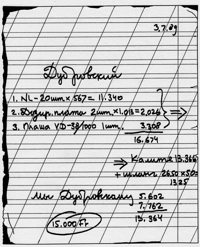 3.7.89
Дубровский
1. NL-20шт.×567=11.340
2. Додир. плата 2шт.×1,013=2,026
3. Плаша VD-38/1000 1шт. 3.308
16.674
⇒ Калит= 13.365
+ шланг 2650×50%
1325
Мы Дубровскому 5.602
7.762
13.364
15.000 Ft